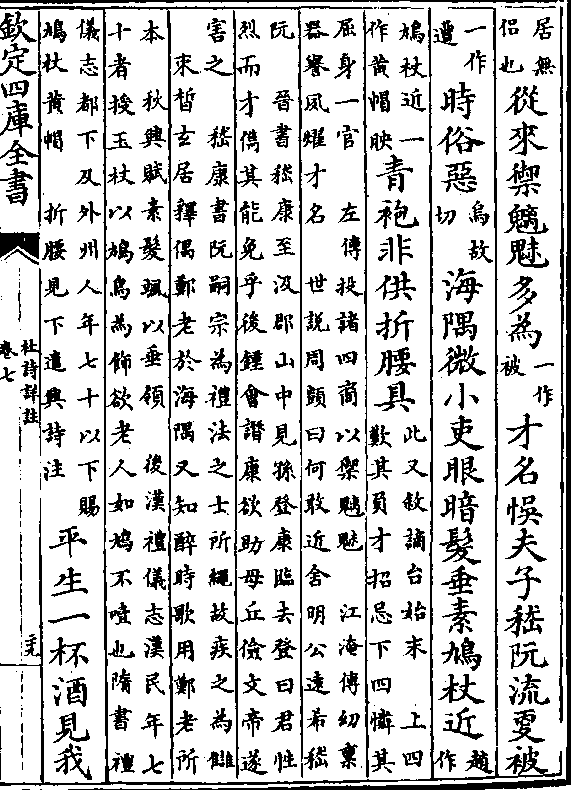 居無
侶也
從來禦魑魅多為
一作
被
才名悞夫子嵇阮流更被
一作
遭
時俗惡
烏故
切
海隅微小吏眼暗髪垂素鳩杖近
趙
作
鳩杖近一
作黄帽映
青袍非供折腰具
此又敘謫台始末 上四
歎其負才招忌下四憐其
屈身一官 左傳投諸四裔以禦魑魅 江淹傳幼禀
器譽夙耀才名 世説周顗曰何敢近舍明公逺希嵇
阮 晉書嵇康至汲郡山中見孫登康臨去登曰君性
烈而才儁其能免乎後鍾會譖康欲助母丘儉文帝遂
害之 嵇康書阮嗣宗為禮法之士所繩故疾之為讎
束晳玄居釋偶鄭老於海隅又知醉時歌用鄭老所
本 秋興賦素髪颯以垂領 後漢禮儀志漢民年七
十者授玉杖以鳩鳥為飾欲老人如鳩不噎也隋書禮
儀志都下及外州人年七十以下賜
鳩杖黄帽 折腰見下遣興詩注
平生一杯酒見我
欽定四庫全書
杜詩詳註
卷七
二九